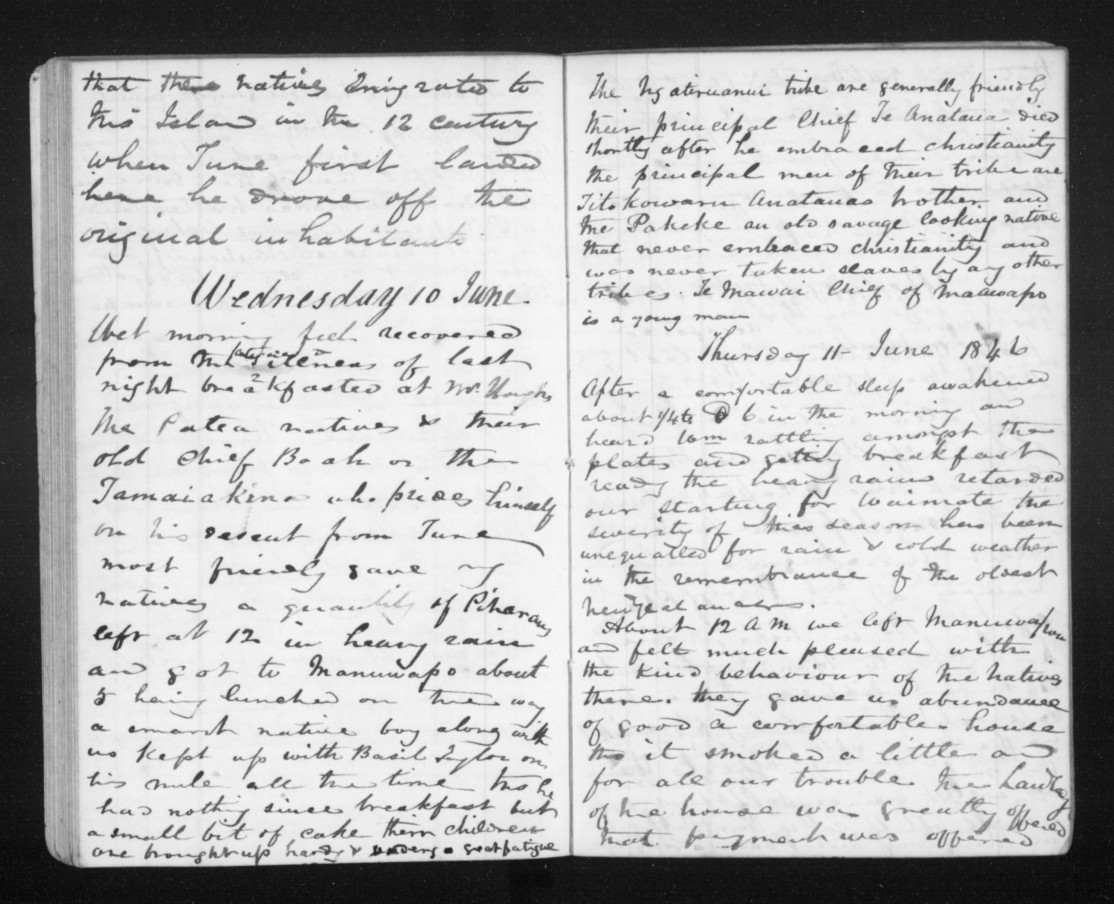 that the natives Emigrated to
this Island in the 12 century
when Ture first landed
here he drove off the
original inhabitants
Wednesday 10 June.
Wet morning feel recovered
from the of last
night breakfasted at Mr. Houghs
The Patea natives & their
old Chief Baak or the
Tamaiakina who prides himself
on his desent from Ture
most friendly gave my
natives a quantity of Piharaus
left at 12 in heavy rain
and got to Manuwapo about
5 having lunched on the way
a smart native boy along with
us kept up with Basil Taylor on
his mule all the time tho he
had nothing since breakfast but
a small bit of cake them children
are brought up hardy & undergo great fatigue
The Ngatiruanui tribe are generally friendly
their principal Chief Te Anataua died
shortly after he embraced christianity
the principal men of their tribe are
Titokowaru Anatauas brother and
the Pakeke an old savage looking native
that never embraced christianity and
was never taken slaves by any other
tribes. Te Mawai Chief of Manuwapo
is a young man
Thursday 11 June 1846
After a comfortable sleep awakened
about 1/4 to 6 in the morning and
heard Wm rattling amongst the
plates and getting breakfast
ready the heavy rain retarded
our starting for Waimate the
severity of this season has been
unequalled for rain & cold weather
in the remembrance of the oldest
New Zealanders.
About 12 A M we left Manuwapou
and felt much pleased with
the kind behaviour of the natives
there. they gave us abundance
of good a comfortable house
tho it smoked a little and
for all our trouble the Landlady
of the house was greatly offered
that payment was offered